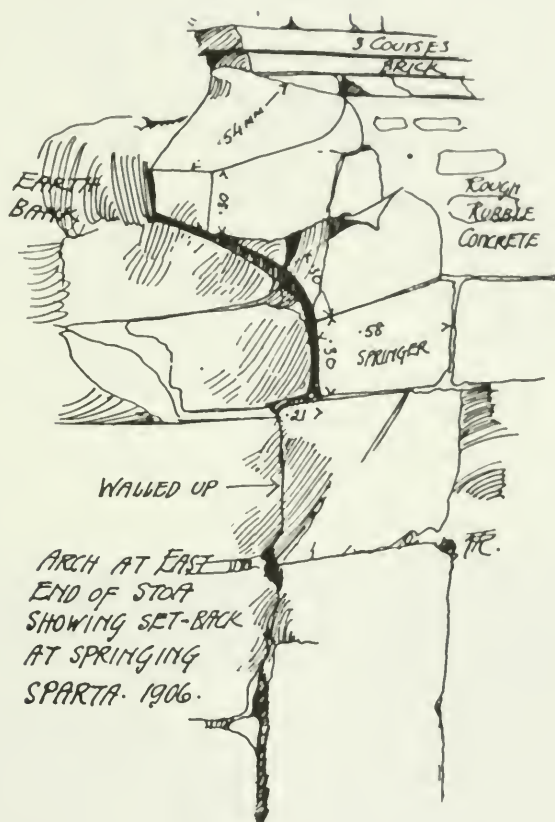 3 COURSES
BRICK
.54MM
EARTH
BANK
.30
ROUGH
RUBBLE
CONCRETE
.50
.58
SPRINGER
.30
.21
WALLED UP
ARCH AT EAST
END OF STOA
SHOWING SET-BACK
AT SPRINGING
SPARTA. 1906.